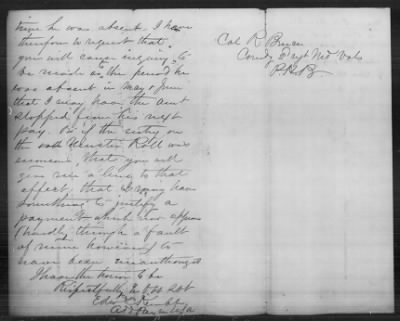 time he was absent. I have
therefore to request that
you will cause inquiry to
be made as the period he
was absent in May & June
that I may have the amt
stopped from his next
pay. Or if the entry on
the Muster Roll was
erroneous, that you will
give me a line to that
effect, that I may have
something to justify a
payment which now appears
through a fault
of mine to
have been unauthorized
I have the honor to be
Respectfully Yr Obt Svt
Edw
Paymr USA
Col R Bruce
Comdg Regt Md Vols